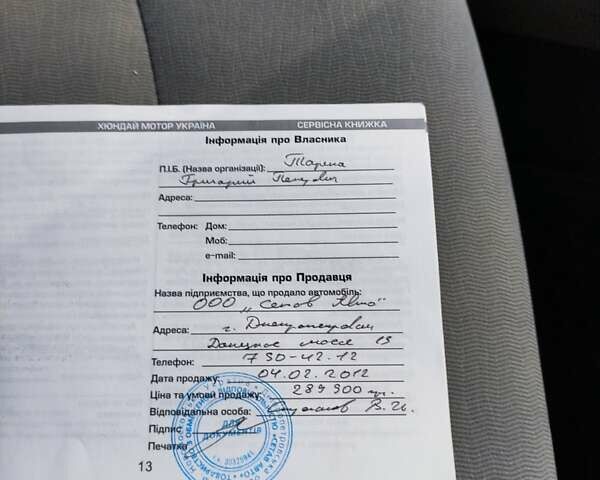 ХЮНДАЙ МОТОР УКРАЇНА СЕРВІСНА КНИЖКА
Інформація про Власника
П.І.Б. (Назва організації):
Григорий Петрович
Адреса:
Телефон: Дом:
Моб:
e-mail:
Інформація про Продавця
Назва підприємства, що продало автомобіль:
ООО „Сетов Авто"
Адреса: г. Днепропетровск
Донецкое шоссе
Телефон: 790-42-12
Дата продажу: 04.02.2012
Ціна та умови продажу: 289900
Відповідальна особа: В.И.
Підпис
Печатка
ДЛЯ
ДОКУМЕНТІВ
13